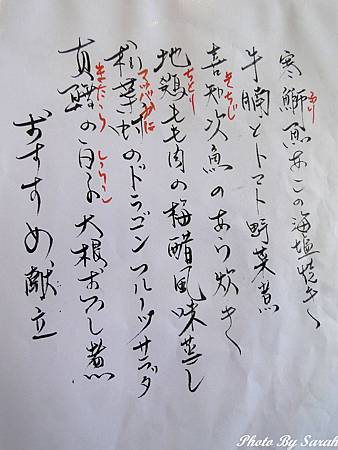 寒鰤魚の海塩焼き
ぶり
牛腩とトマト野菜煮
喜知次魚のあら炊き
きちじ
地鶏もも肉の梅醋風味蒸し
ぢとり
松葉蟹のドラゴンフルーツサラダ
マツバガニ
真鱈の白子大根おろし煮
まだら しらこ
おすすめ献立
Photo By Sarah